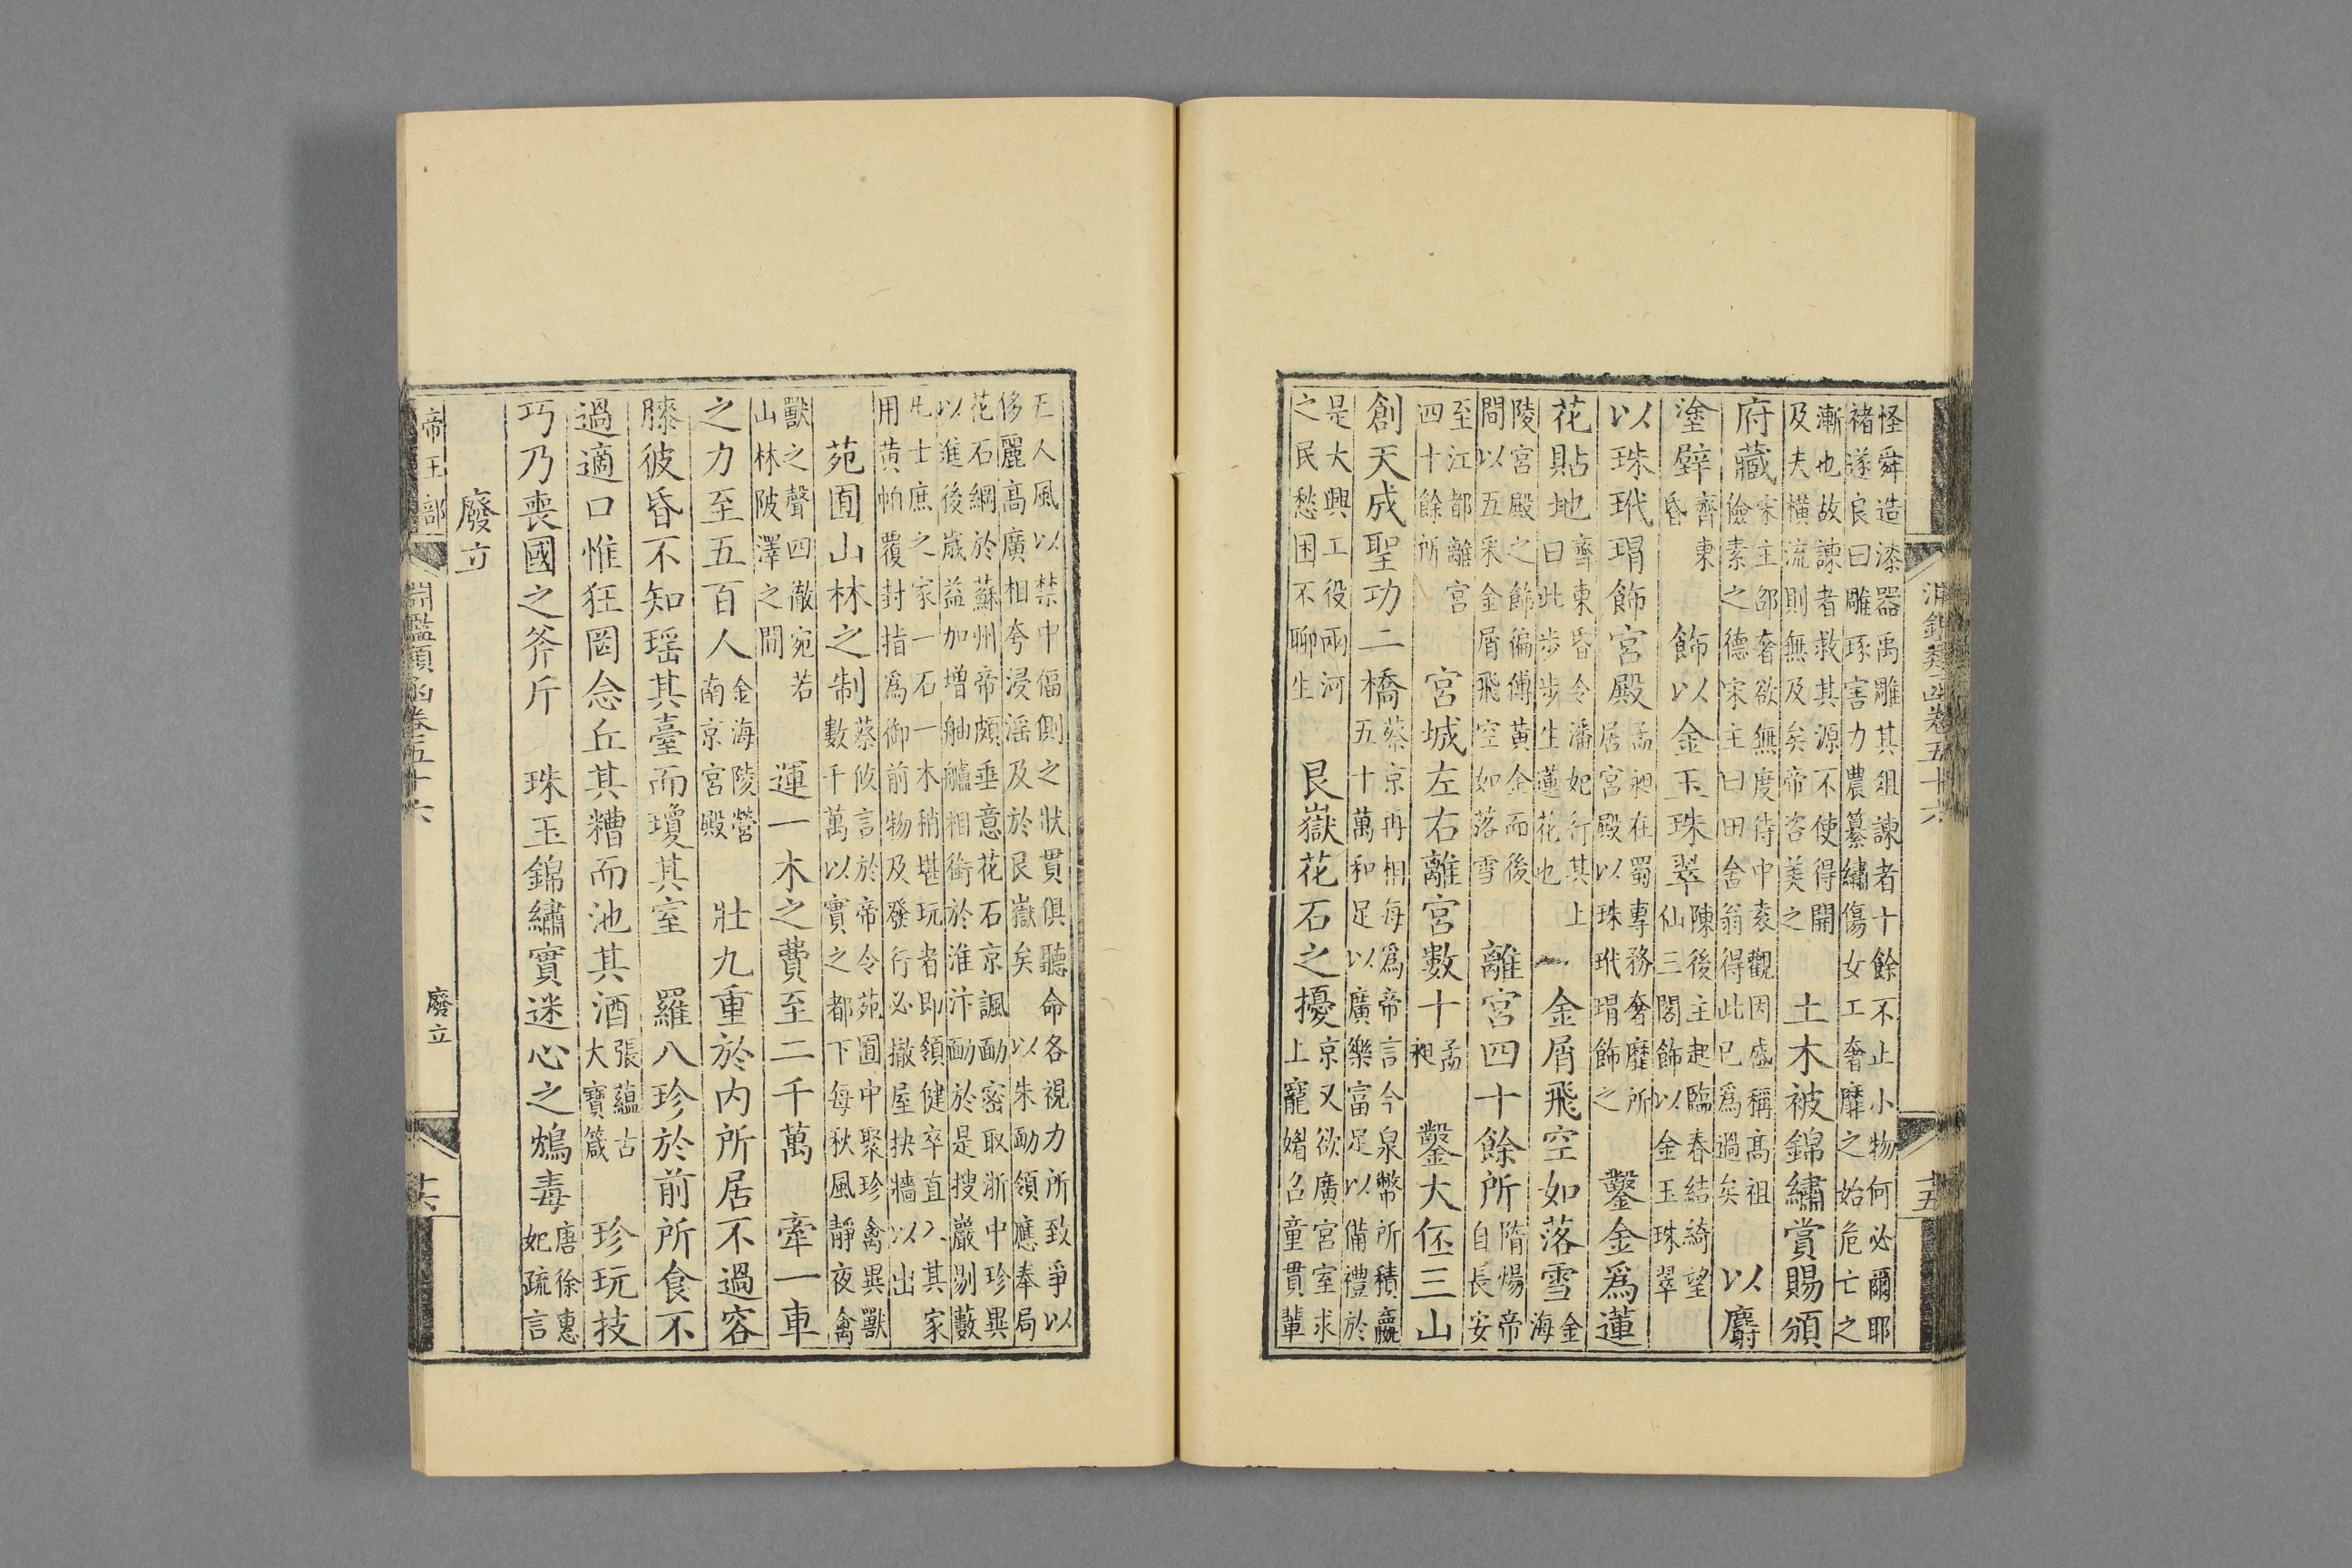 淵鑑類函卷五十六
十五
怪舜造漆器禹雕其俎諫者十餘不止小物何必爾耶
褚遂良曰雕琢害力農纂繡傷女工奢靡之始危亡之
漸也故諫者救其源不使得開
及夫橫流則無及矣帝咨美之
土木被錦繡賞賜頒
府藏
宋主邵奢欲無度侍中袁覬因盛稱高祖
儉素之德宋主曰田舍翁得此已爲過矣
以麝
塗壁
齊東
昏
飾以金玉珠翠
陳後主起臨春結綺望
仙三閣飾以金玉珠翠
以珠玳瑁飾宮殿
孟昶在蜀專務奢靡所
居宮殿以珠玳瑁飾之
鑿金爲蓮
花貼地
齊東昏令潘妃行其上
曰此步步生蓮花也
金屑飛空如落雪
金
海
陵宮殿之飾徧傅黃金而後
間以五采金屑飛空如落雪
離宮四十餘所
隋煬帝
自長安
至江都離宮
四十餘所
宮城左右離宮數十
孟
昶
鑿大伾三山
創天成聖功二橋
蔡京再相每爲帝言今泉幣所積贏
五十萬和足以廣樂富足以備禮於
是大興工役兩河
之民愁困不聊生
艮嶽花石之擾
京又欲廣宮室求
上寵媚召童貫輩
五人風以禁中偪側之狀貫俱聽命各視力所致爭以
侈麗高廣相夸浸淫及於艮嶽矣
以朱勔領應奉局
花石綱於蘇州帝頗垂意花石京諷勔密取浙中珍異
以進後歲益加增舳艫相銜於淮汴勔於是搜巖剔藪
凡士庶之家一石一木稍堪玩者即領健卒直入其家
用黃帕覆封指爲御前物及發行必撤屋抉牆以出
苑囿山林之制
蔡攸言於帝令苑囿中聚珍禽異獸
數千萬以實之都下每秋風靜夜禽
獸之聲四徹宛若
山林陂澤之間
運一木之費至二千萬
牽一車
之力至五百人
金海陵營
南京宮殿
壯九重於内所居不過容
膝彼昏不知瑶其臺而瓊其室
羅八珍於前所食不
過適口惟狂罔念丘其糟而池其酒
張蘊古
大寶箴
珍玩技
巧乃喪國之斧斤
珠玉錦繡實迷心之鴆毒
唐徐惠
妃疏言
廢立
帝王部
淵鑑類函卷五十六
廢立
十六